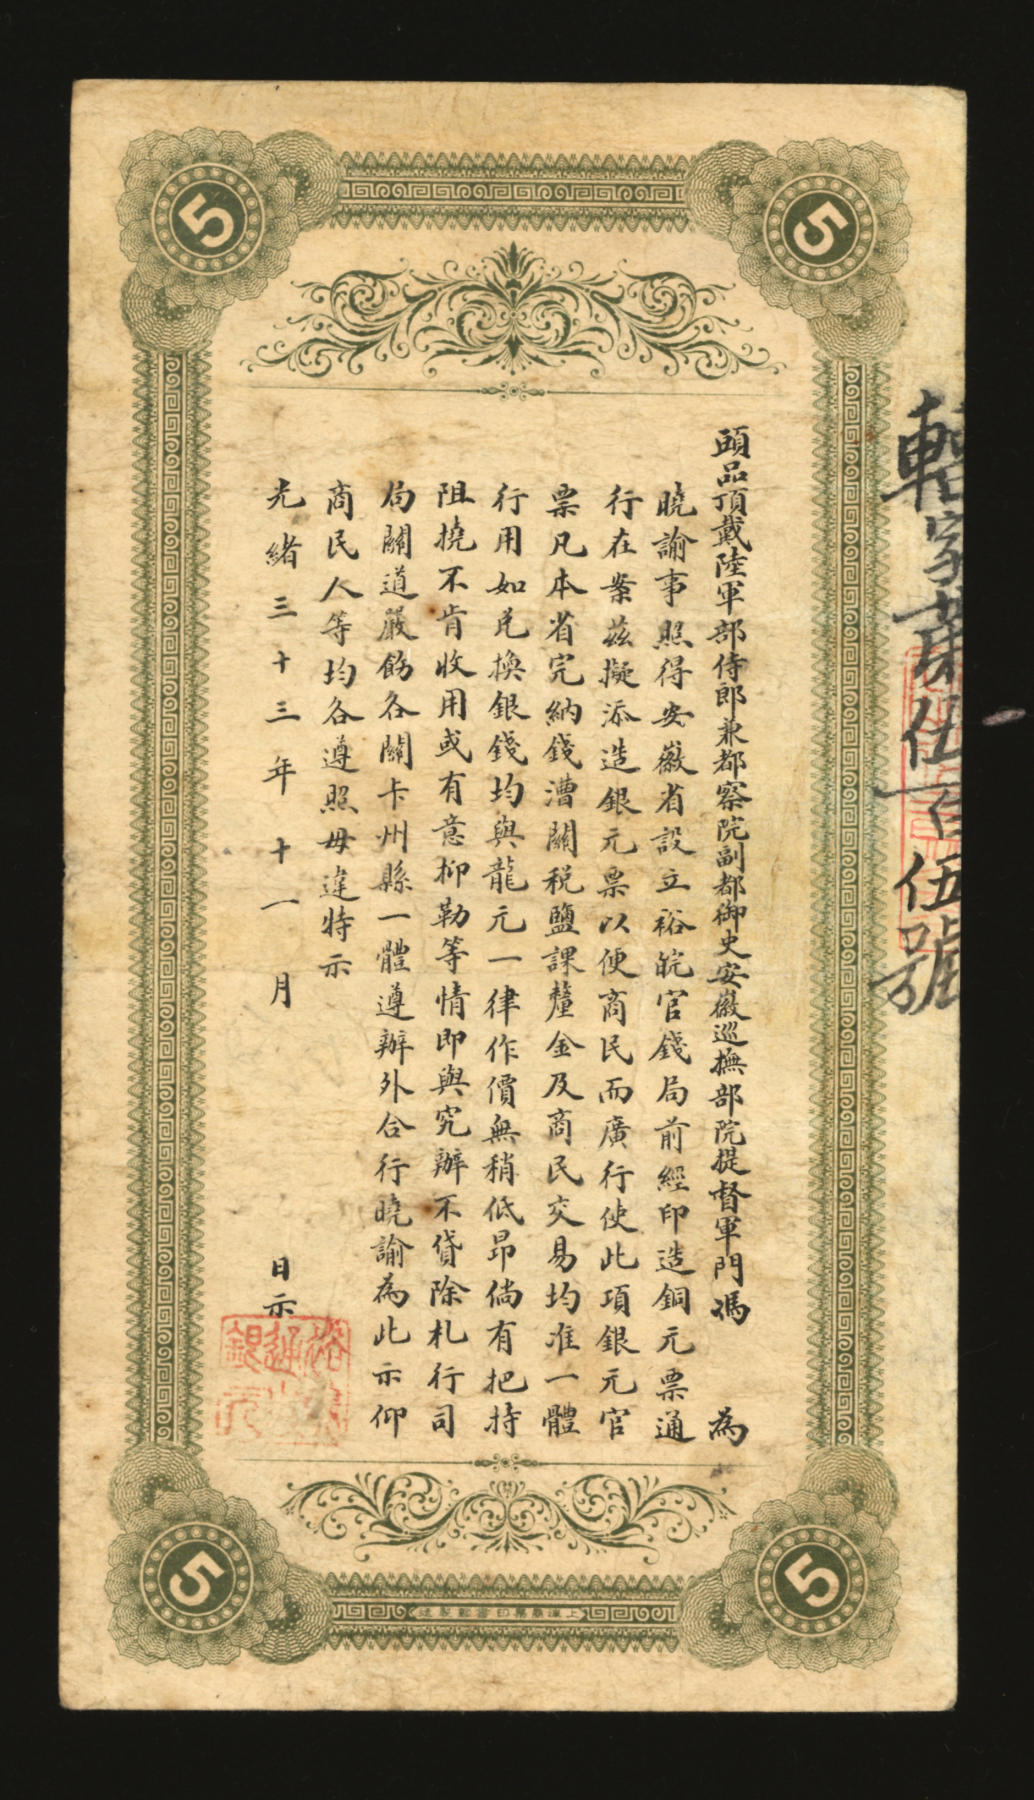 5
5
頭品頂戴陸軍部侍郎兼都察院副都御史安徽巡撫部院提督軍門馮 為
曉諭事照得安徽省設立裕皖官錢局前經印造銅元票通
行在案茲擬添造銀元票以便商民而廣行使此項銀元官
票凡本省完納錢漕關稅鹽課釐金及商民交易均准一體
行用如兌換銀錢均與龍元一律作價無稍低昂倘有把持
阻撓不肯收用或有意抑勒等情即與究辦不貸除札行司
局關道嚴飭各關卡州縣一體遵辦外合行曉諭為此示仰
商民人等均各遵照毋違特示
光緒三十三年十一月 日示
字 伍百伍號
5
5